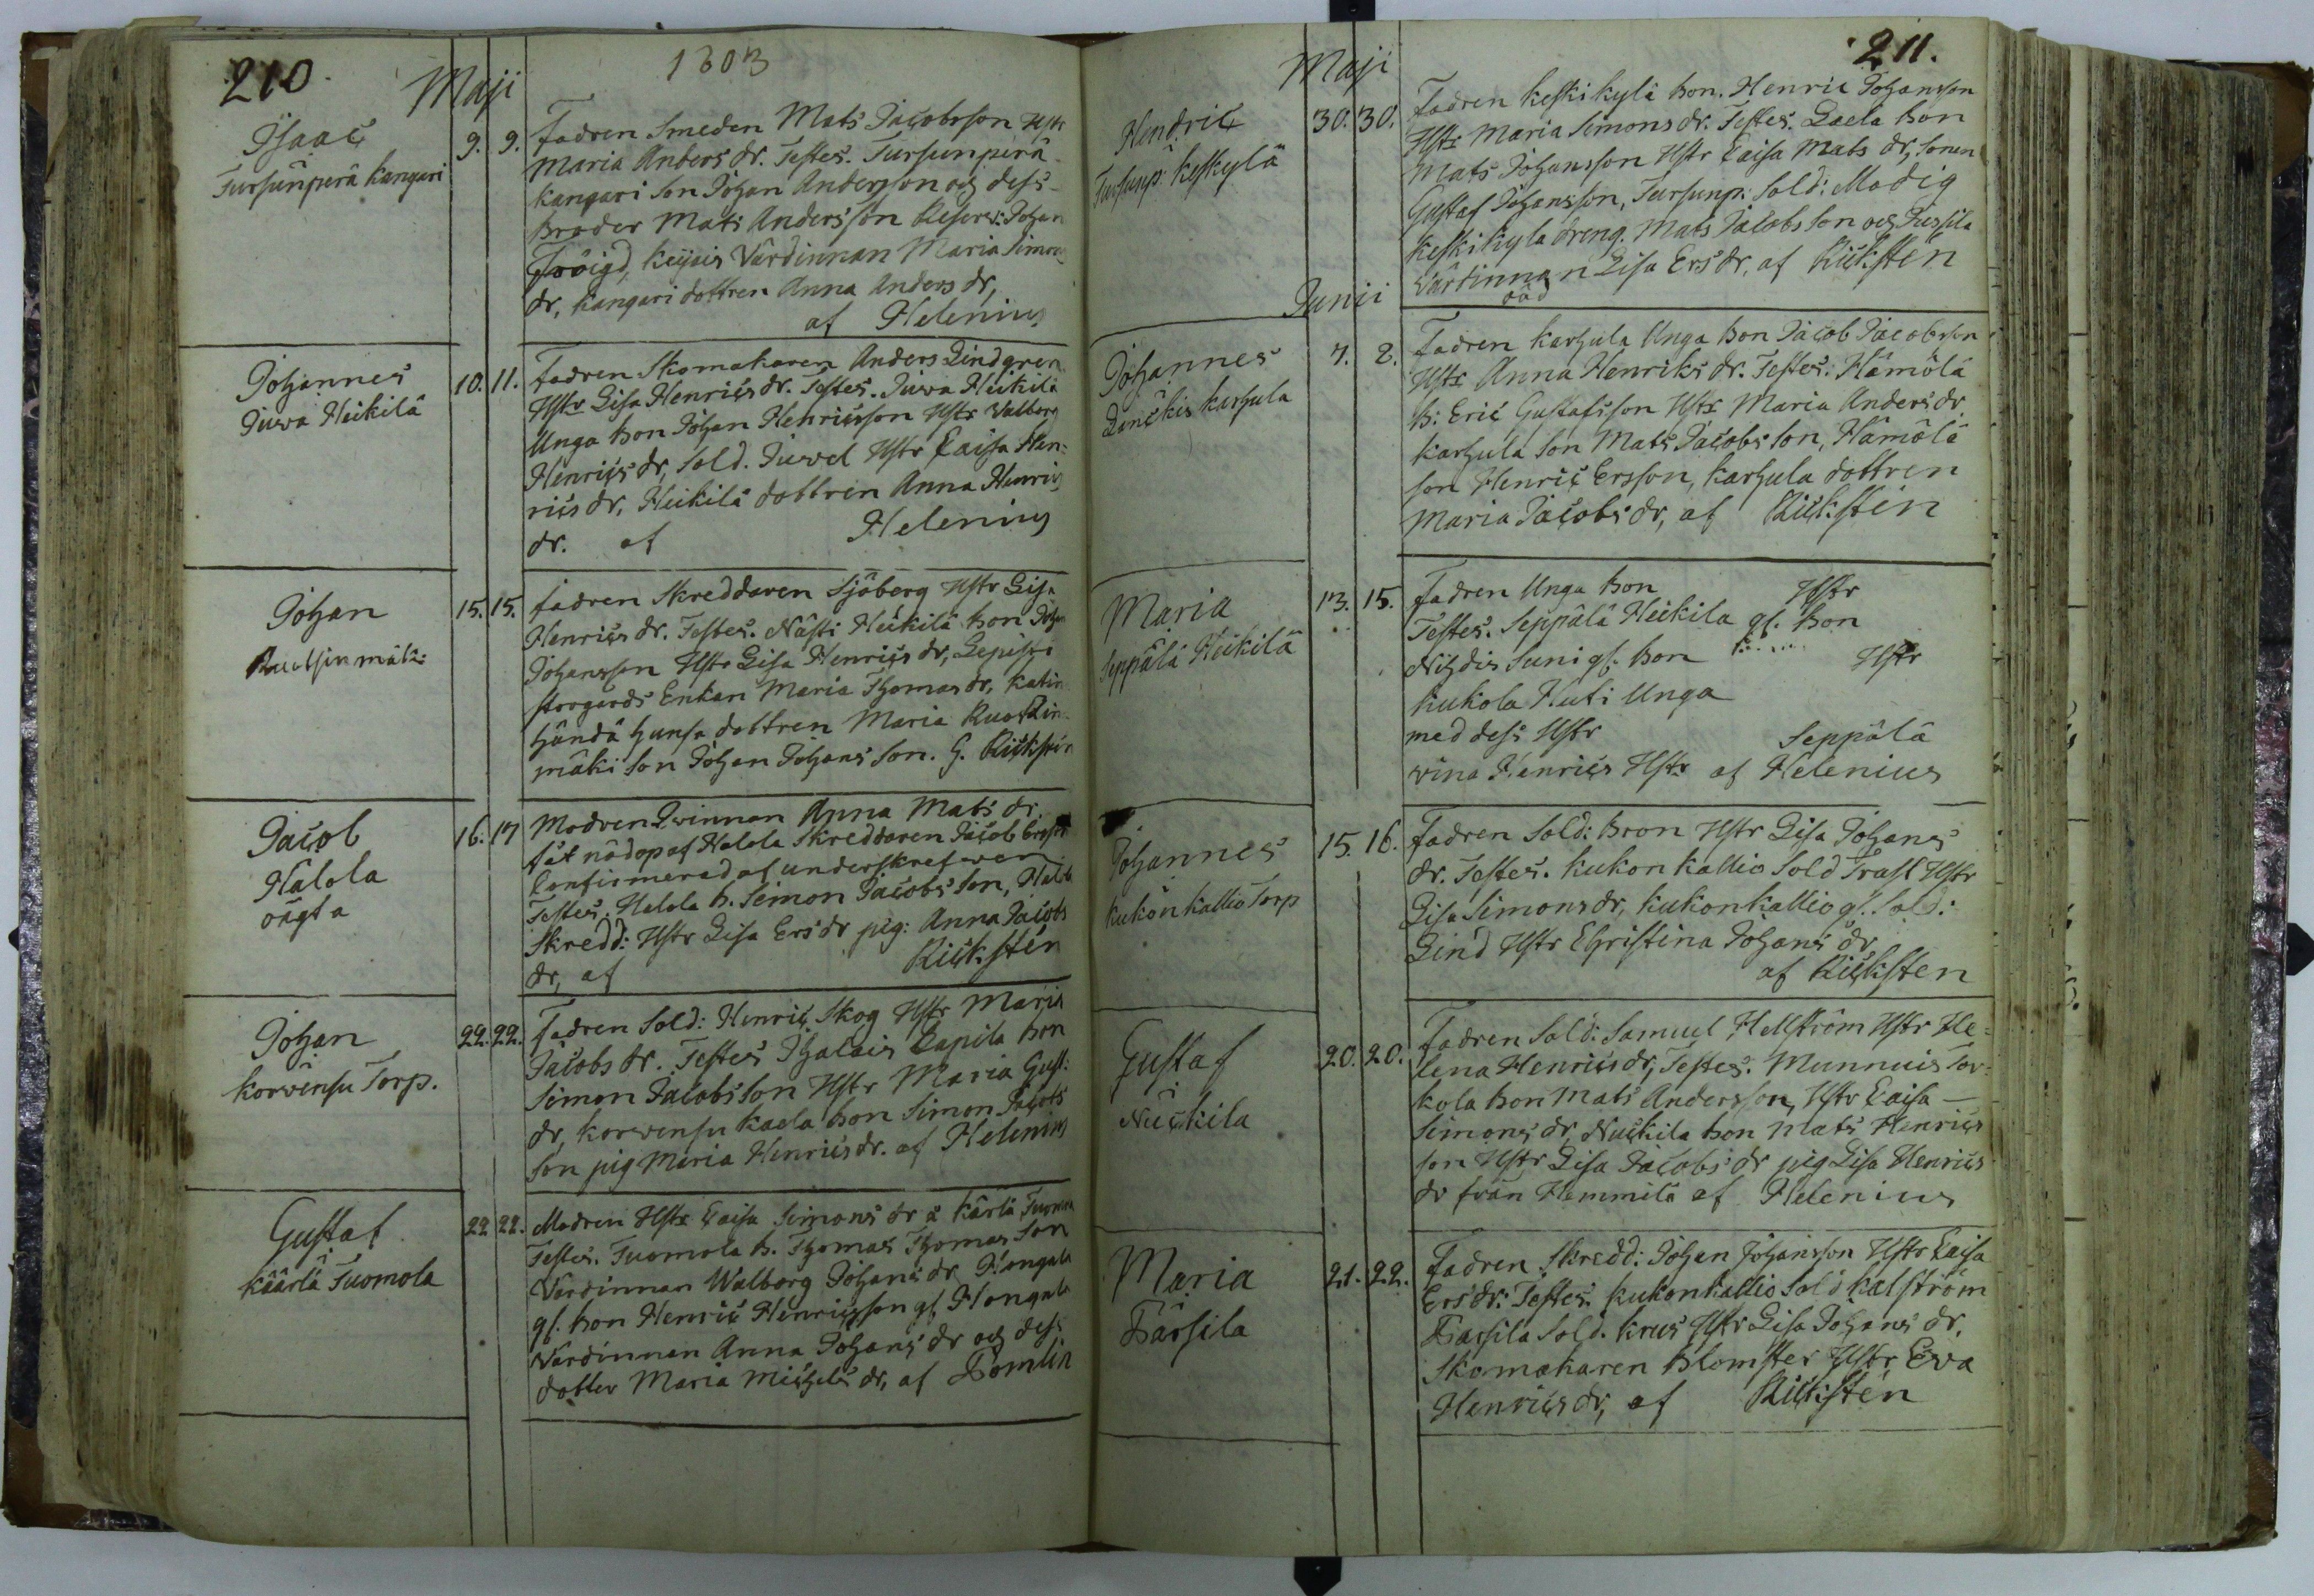 210.
Maji
1803
Isaac
Tursunperä Kangari
9. 9.
Fadren Smeden Mats Jacobsson Hstr
Maria Anders dr. Testes. Tursunperä
Kangari Son Johan Andersson och dess
Broder Mats Andersson Reserv: Johan
Fröigd, Värdinnan Maria Simons
dr, Kangari dottren Anna Anders dr,
af Helenius
Johannes
Juva Heikilä
10. 11.
Fadren Skomakaren Anders Lindgren
Hstr Lisa Henrics dr. Testes. Juva Heikilä
Unga bon Johan Henricsson Hstr Valborg
Henrics dr, Sold. Juvel Hstr Caisa Hen-
rics dr, Heikilä dottren Anna Henrics
dr. af Helenius
Johan
Ruotsinmäki
15. 15.
Fadren Skreddaren Sjöberg Hstr Lisa
Henrics dr. Testes. Nästi Heikilä bon Johan
Johansson Hstr Lisa Henrics dr,
storgårds Enkan Maria Thomas dr, Katin
händä dottren Maria Ruotsin-
mäki Son Johan Johans Son. G. Rickstén
Jacob
Halola
oägta
16. 17
Modren Qvinnan Anna Mats dr
fåt nödop af Halola Skreddaren Jacob Ersson
Confirmerad af underskrefwen
Testes. Halola b. Simon Jacobs Son, Halola
Skredd: Hstr Lisa Ers dr pig: Anna Jacobs
dr, af Rickstén
Johan
Korvensu Torp.
22. 22.
Fadren Sold: Henric Skog Hstr Maria
Jacobs dr. Testes Lapila bon
Simon Jacobsson Hstr Maria Gust:
dr, Korvensu Kaela bon Simon Jacobs
son pig Maria Henrics dr. af Helenius
Gustaf
Käärlä Tuomola
22 22.
Modren Hstr Caisa Simons dr å Kärlä Tuomola
Testes. Tuomola b. Thomas Thomas Son
Värdinnan Walborg Johans dr, Hongala
gl. bon Henric Henricsson gl. Hongala
Värdinnan Anna Johans dr och dess
dotter Maria Michels dr, af Bömlin
211.
Maji
Hendric
Tursunp: Keskylä
30. 30.
Fadren Keskikylä bon. Henric Johansson
Hstr Maria Simons dr. Testes. Laela bon
Mats Johansson Hstr Caisa Mats dr, Sonen
Gustaf Johansson, Tursunp: Sold: Modig
Keskikylä dreng. Mats Jacobs Son och Jussila
Värdinnan Lisa Ers dr, af Rickstén
Junii
Johannes
Karhula
7. 8.
Fadren Karhula Unga bon Jacob Jacobsson
Hstr Anna Henriks dr. Testes: Hämölä
b: Eric Gustafsson Hstr Maria Anders dr
Karhula Son Mats Jacobs Son, Hämölä
son Henric Ersson, Karhula dottren
Maria Jacobs dr, af Rickstén
Maria
Seppälä Heikilä
13. 15.
Fadren Unga bon Hstr
Testes. Seppälä Heikilä gl. bon
Suni gl. bon Hstr
Kukola Huti Unga
med dess Hstr Seppälä
vina Henrics Hstr af Helenius
Johannes
Kukonkallio Torp
15. 16.
Fadren Sold: Bron Hstr Lisa Johans
dr. Testes. Kukonkallio Sold Trast Hstr
Lisa Simons dr, Kukonkallio gl. Sold:
Lind Hstr Christina Johans dr
af Rickstén
Gustaf
i
Nuckila
20. 20.
Fadren Sold: Samuel Hellström Hstr He-
lena Henrics dr, Testes. Munnuis Tor-
kola bon Mats Andersson, Hstr Caisa
Simons dr, Nuckila bon Mats Henrics
son Hstr Lisa Jacobs dr pig Lisa Henrics
dr från Hemmilä af Helenius
Maria
Bärsila
21. 22.
Fadren Skredd: Johan Johansson Hstr Caisa
Ers dr: Testes. Kukonkallio Sold Kalström
Bärsila Sold. Krus Hstr Lisa Johans dr.
Skomakaren Blomster Hstr Eva
Henrics dr, af Rickstén